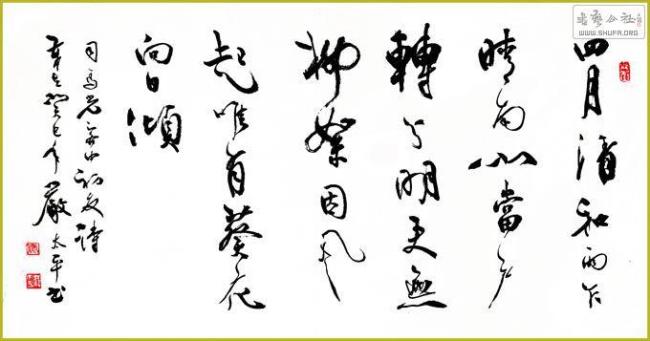 書藝公社
WWW.SHUFA.ORG
四月清和雨乍
晴南山當户
轉分明更無
柳絮因风
起唯有葵花
向日傾
司馬光客中初夏詩
歲在癸巳年嚴太平书